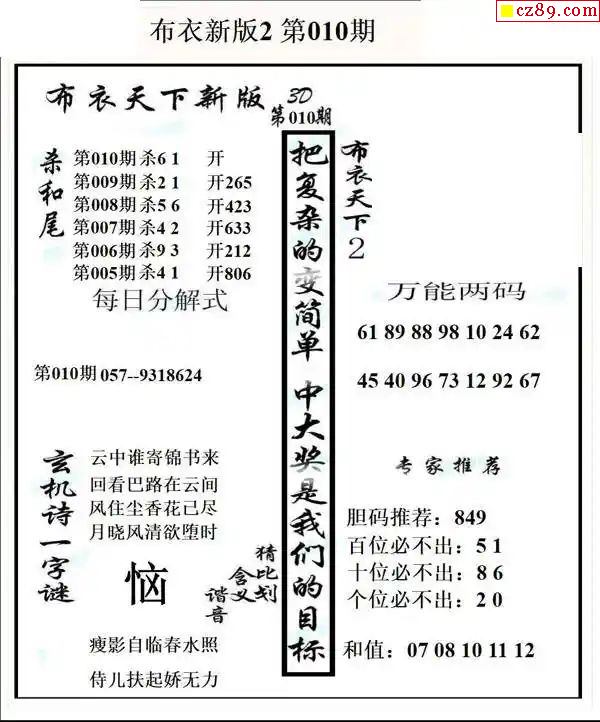 cz89.com
布衣新版2 第010期
布衣天下新版 3D
第010期
杀和尾
第010期杀6 1 开
第009期杀2 1 开265
第008期杀5 6 开423
第007期杀4 2 开633
第006期杀9 3 开212
第005期杀4 1 开806
每日分解式
第010期057--9318624
玄机诗一字谜
云中谁寄锦书来
回看巴路在云间
风住尘香花已尽
月晓风清欲堕时
恼
猜比划
含义
谐音
瘦影自临春水照
侍儿扶起娇无力
把复杂的变简单 中大奖是我们的目标
布衣天下2
万能两码
61 89 88 98 10 24 62
45 40 96 73 12 92 67
专家推荐
胆码推荐：849
百位必不出：5 1
十位必不出：8 6
个位必不出：2 0
和值：07 08 10 11 12